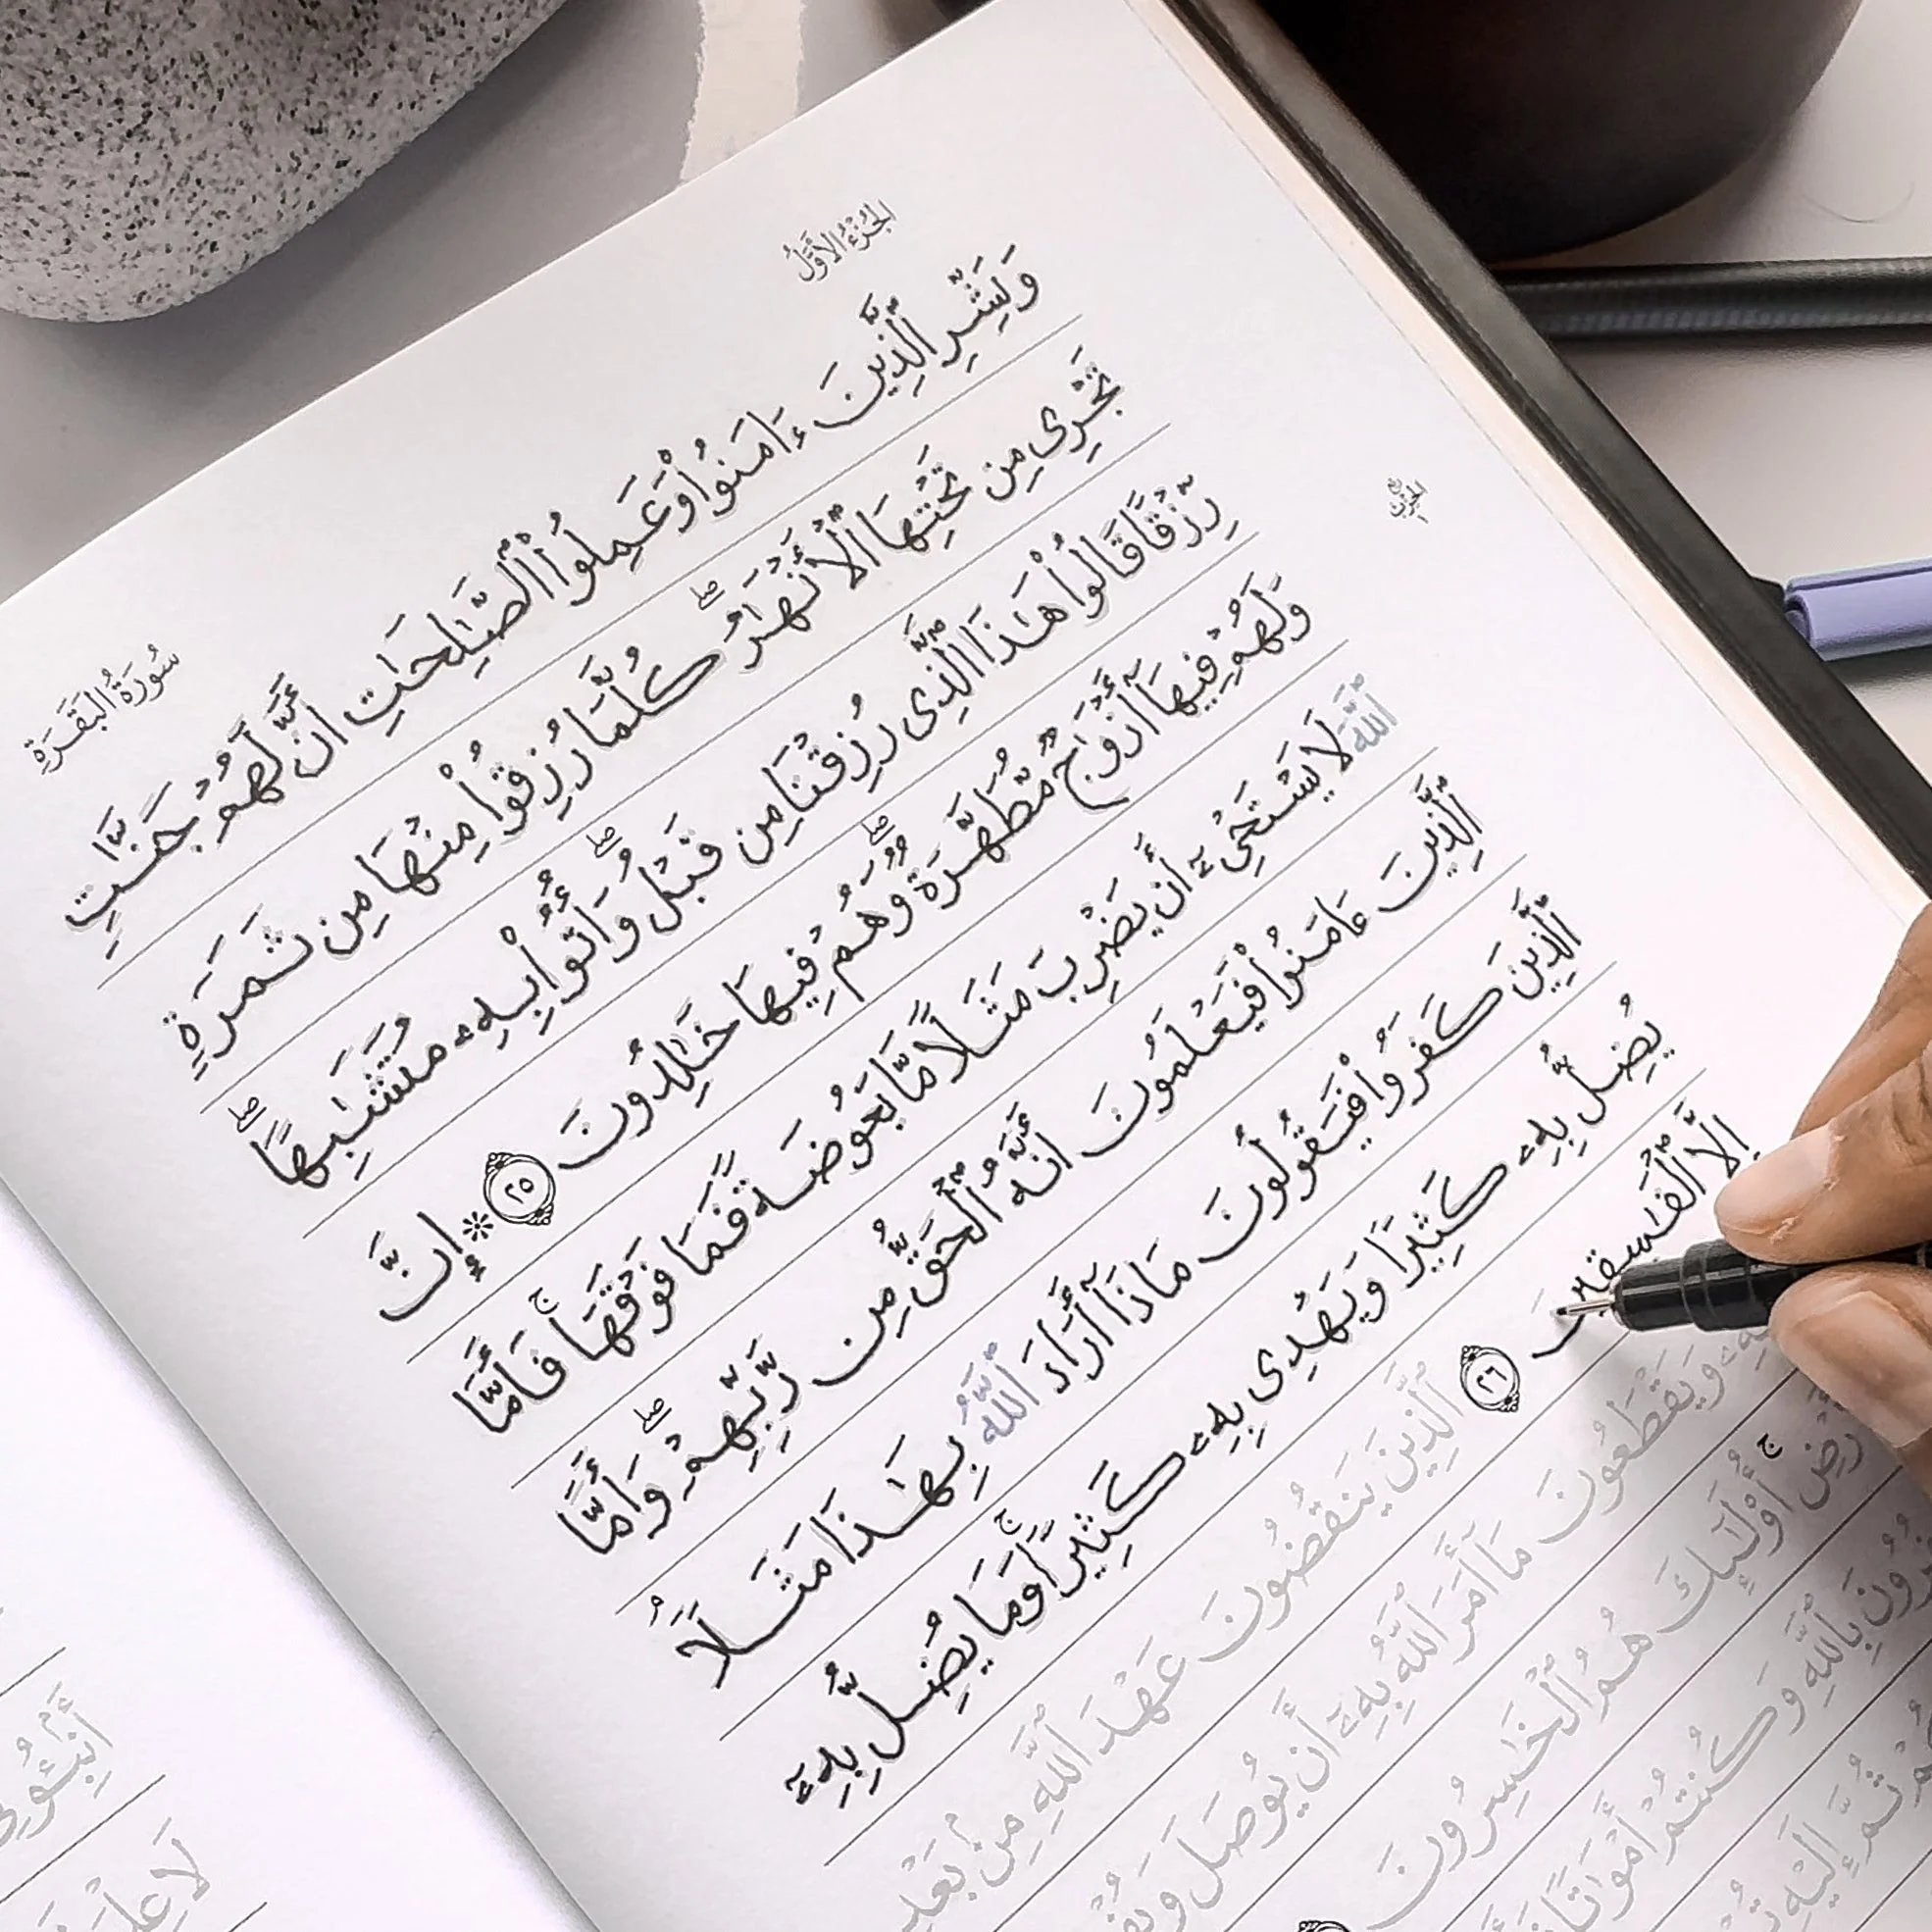 الجُزْءُ الأَوَّلُ
سُورَةُ البَقَرَةِ
وَبَشِّرِ ٱلَّذِينَ ءَامَنُواْ وَعَمِلُواْ ٱلصَّـٰلِحَـٰتِ أَنَّ لَهُمۡ جَنَّـٰتٍ
تَجۡرِى مِن تَحۡتِهَا ٱلۡأَنۡهَـٰرُۖ كُلَّمَا رُزِقُواْ مِنۡهَا مِن ثَمَرَةٍ
رِّزۡقًا قَالُواْ هَـٰذَا ٱلَّذِى رُزِقۡنَا مِن قَبۡلُۖ وَأُتُواْ بِهِۦ مُتَشَـٰبِهًاۖ
وَلَهُمۡ فِيهَآ أَزۡوَٰجٌ مُّطَهَّرَةٌۖ وَهُمۡ فِيهَا خَـٰلِدُونَ ٢٥ * إِنَّ
ٱللَّهَ لَا يَسۡتَحۡىِۦٓ أَن يَضۡرِبَ مَثَلًا مَّا بَعُوضَةً فَمَا فَوۡقَهَاۚ فَأَمَّا
ٱلَّذِينَ ءَامَنُواْ فَيَعۡلَمُونَ أَنَّهُ ٱلۡحَقُّ مِن رَّبِّهِمۡۖ وَأَمَّا
ٱلَّذِينَ كَفَرُواْ فَيَقُولُونَ مَاذَآ أَرَادَ ٱللَّهُ بِهَـٰذَا مَثَلًاۘ
يُضِلُّ بِهِۦ كَثِيرًا وَيَهۡدِى بِهِۦ كَثِيرًاۚ وَمَا يُضِلُّ بِهِۦٓ
إِلَّا ٱلۡفَـٰسِقِينَ ٢٦ ٱلَّذِينَ يَنقُضُونَ عَهۡدَ ٱللَّهِ مِنۢ بَعۡدِ
وَيَقۡطَعُونَ مَآ أَمَرَ ٱللَّهُ بِهِۦٓ أَن يُوصَلَ
أُوْلَـٰٓئِكَ هُمُ ٱلۡخَـٰسِرُونَ
بِٱللَّهِ وَكُنتُمۡ أَمۡوَٰتًا
ثُمَّ إِلَيۡهِ
لَا عِلۡمَ